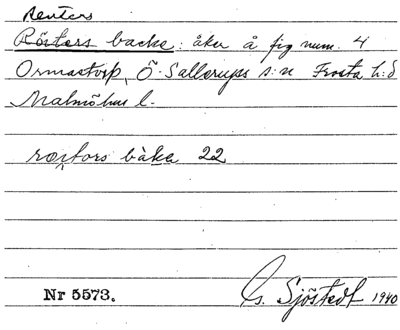 Reuters
Röstors backe: åker å fig num. 4
Ormastorp, Ö. Sallerups s:n Frosta h:d
Malmöhus l.
roxtors bàka 22
Nr 5573.
G. Sjöstedt 1940